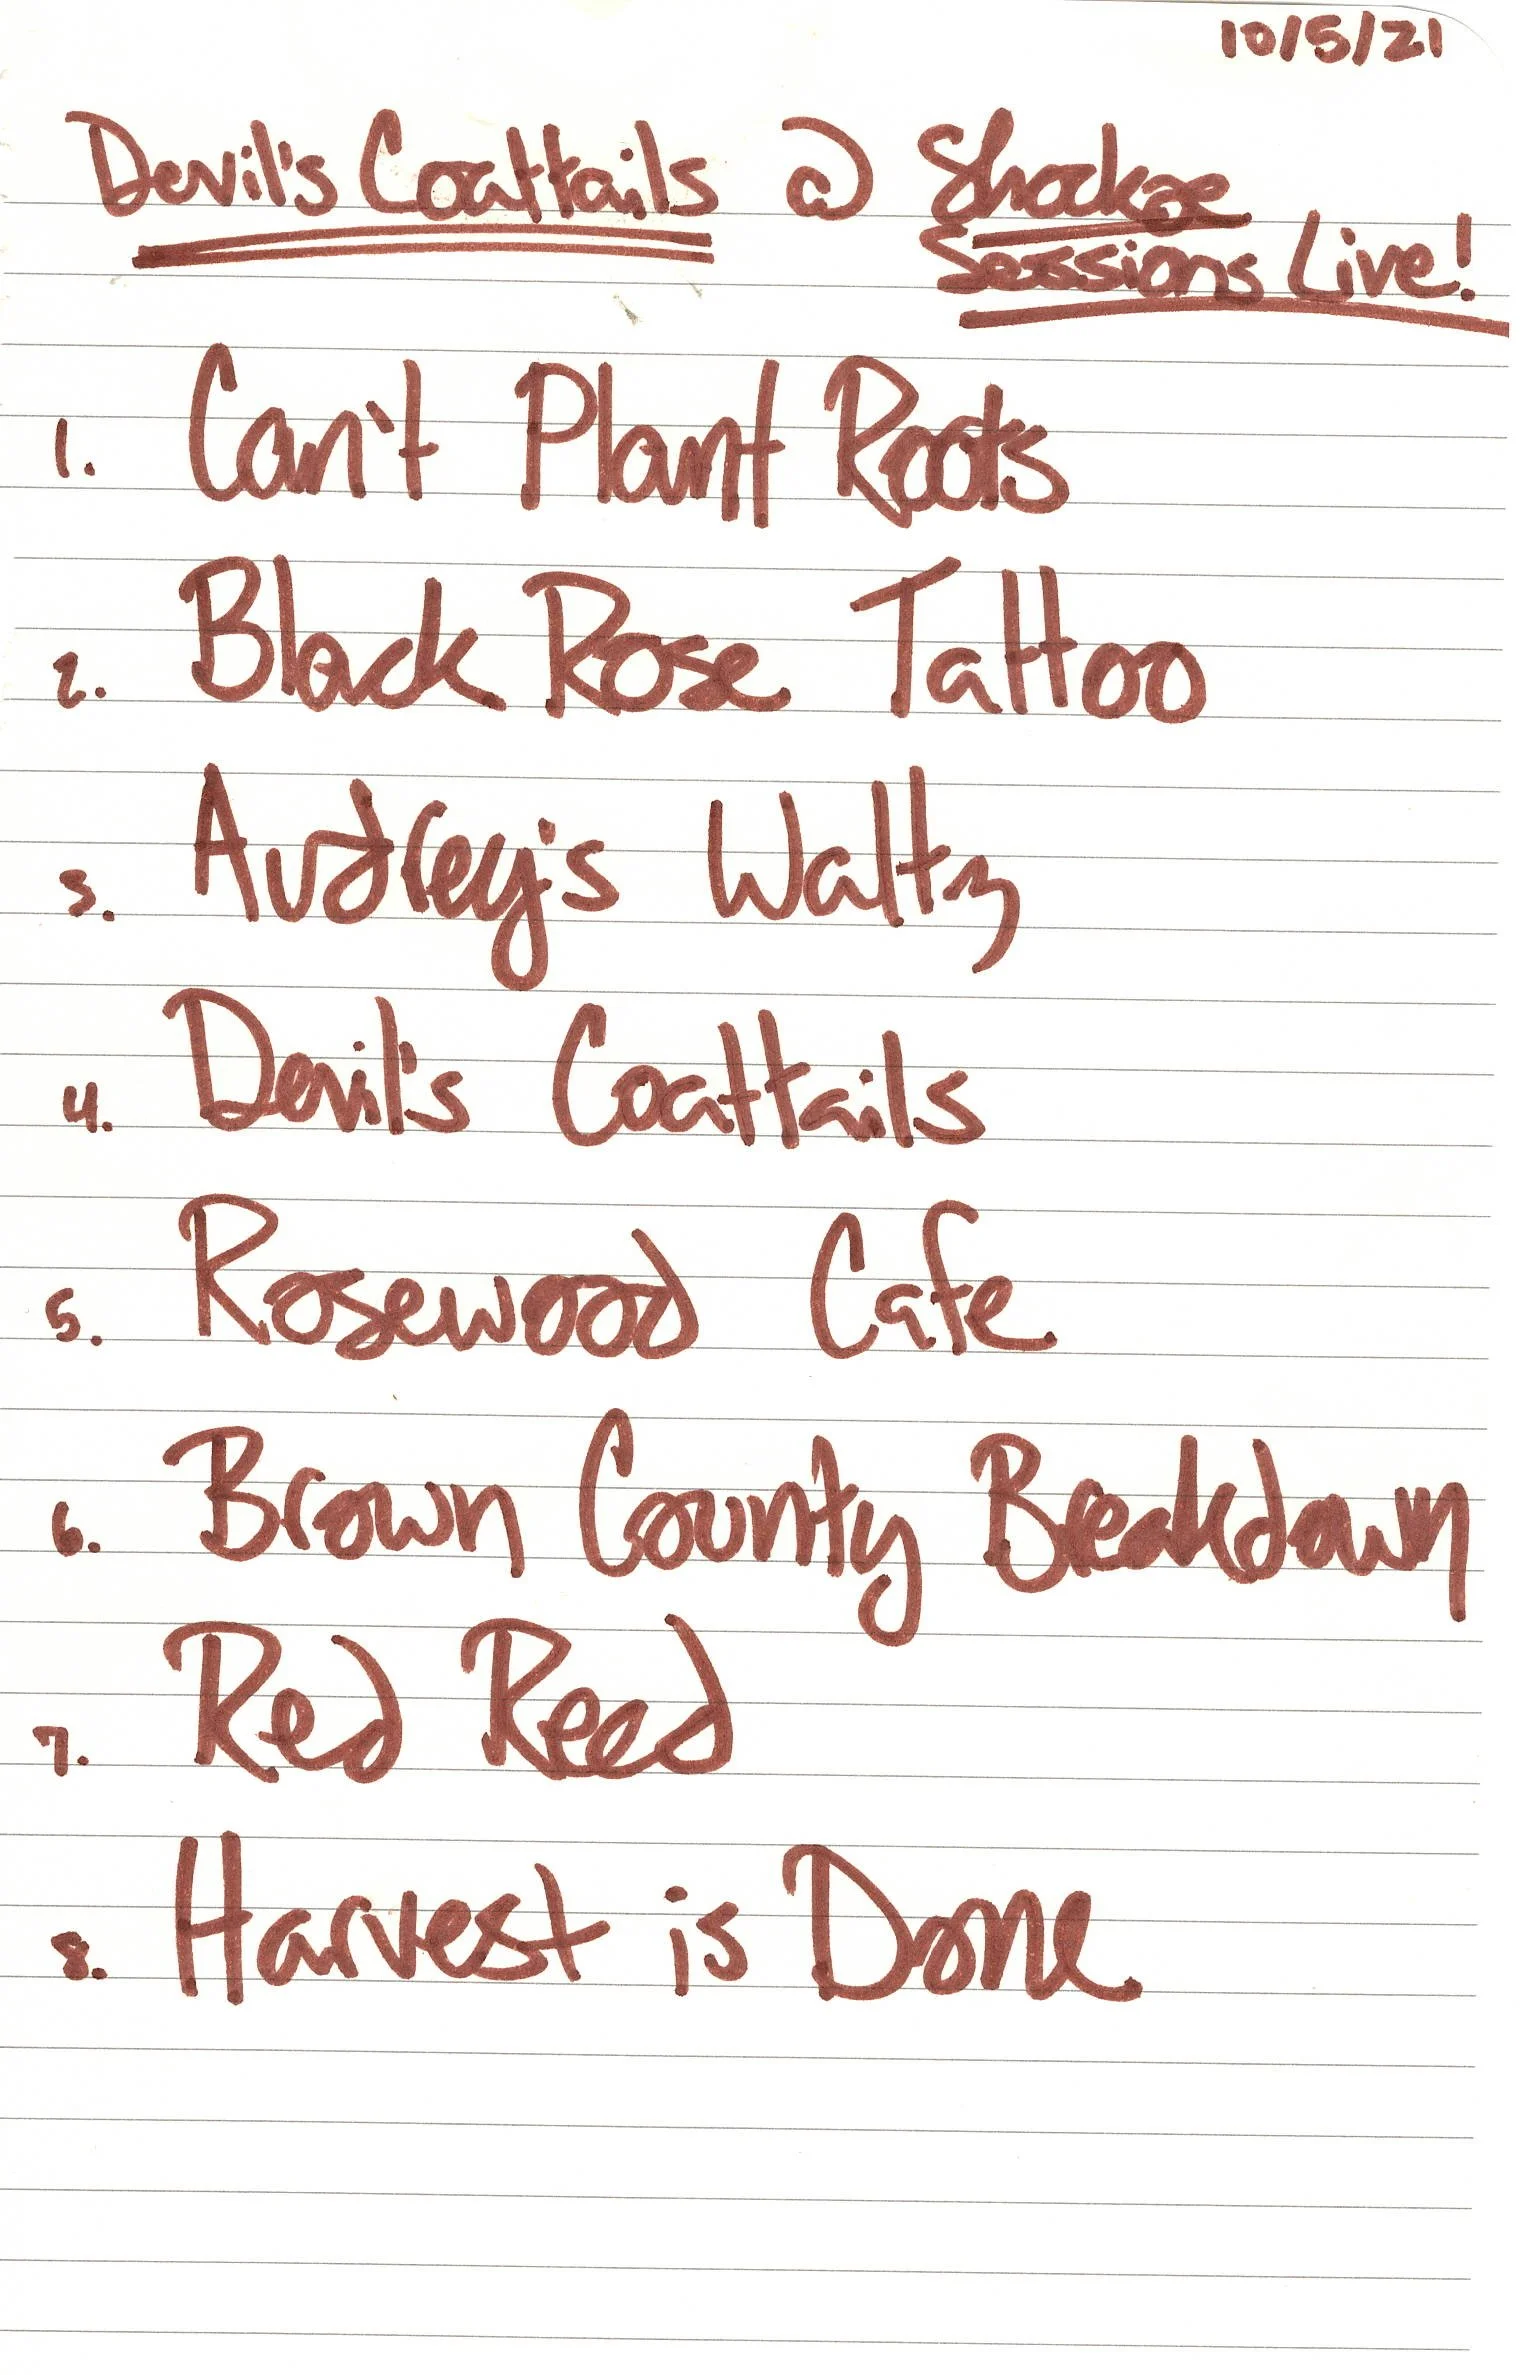 10/5/21
Devil's Coattails @ Shockae
Sessions Live!
1. Can't Plant Roots
2. Black Rose Tattoo
3. Audrey's Waltz
4. Devil's Coattails
5. Rosewood Cafe
6. Brown County Breakdown
7. Red Reed
8. Harvest is Done